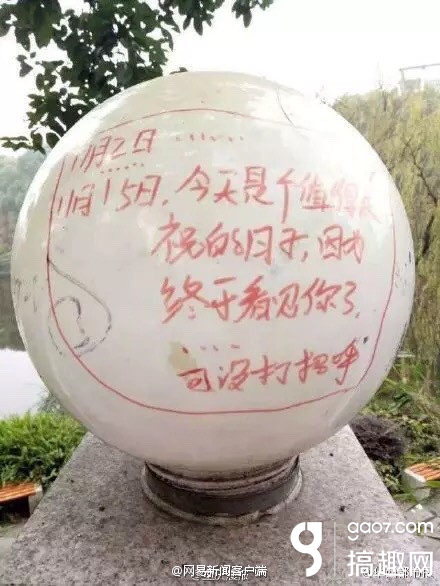 11月2日 ……
11月15日.今天是个值得庆
祝的日子,因为
终于看见你了,
……
可没打招呼
@网易新闻客户端
gao7.com
搞趣网